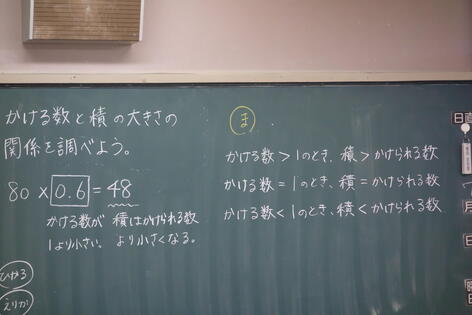 かける数と積の大きさの
関係を調べよう。
80 × 0.6 = 48
かける数が
1より小さい。
積はかけられる数
より小さくなる。
ひかる
えりか
ま
かける数 > 1のとき、積 > かけられる数
かける数 = 1のとき、積 = かけられる数
かける数 < 1のとき、積 < かけられる数
日直
月
日